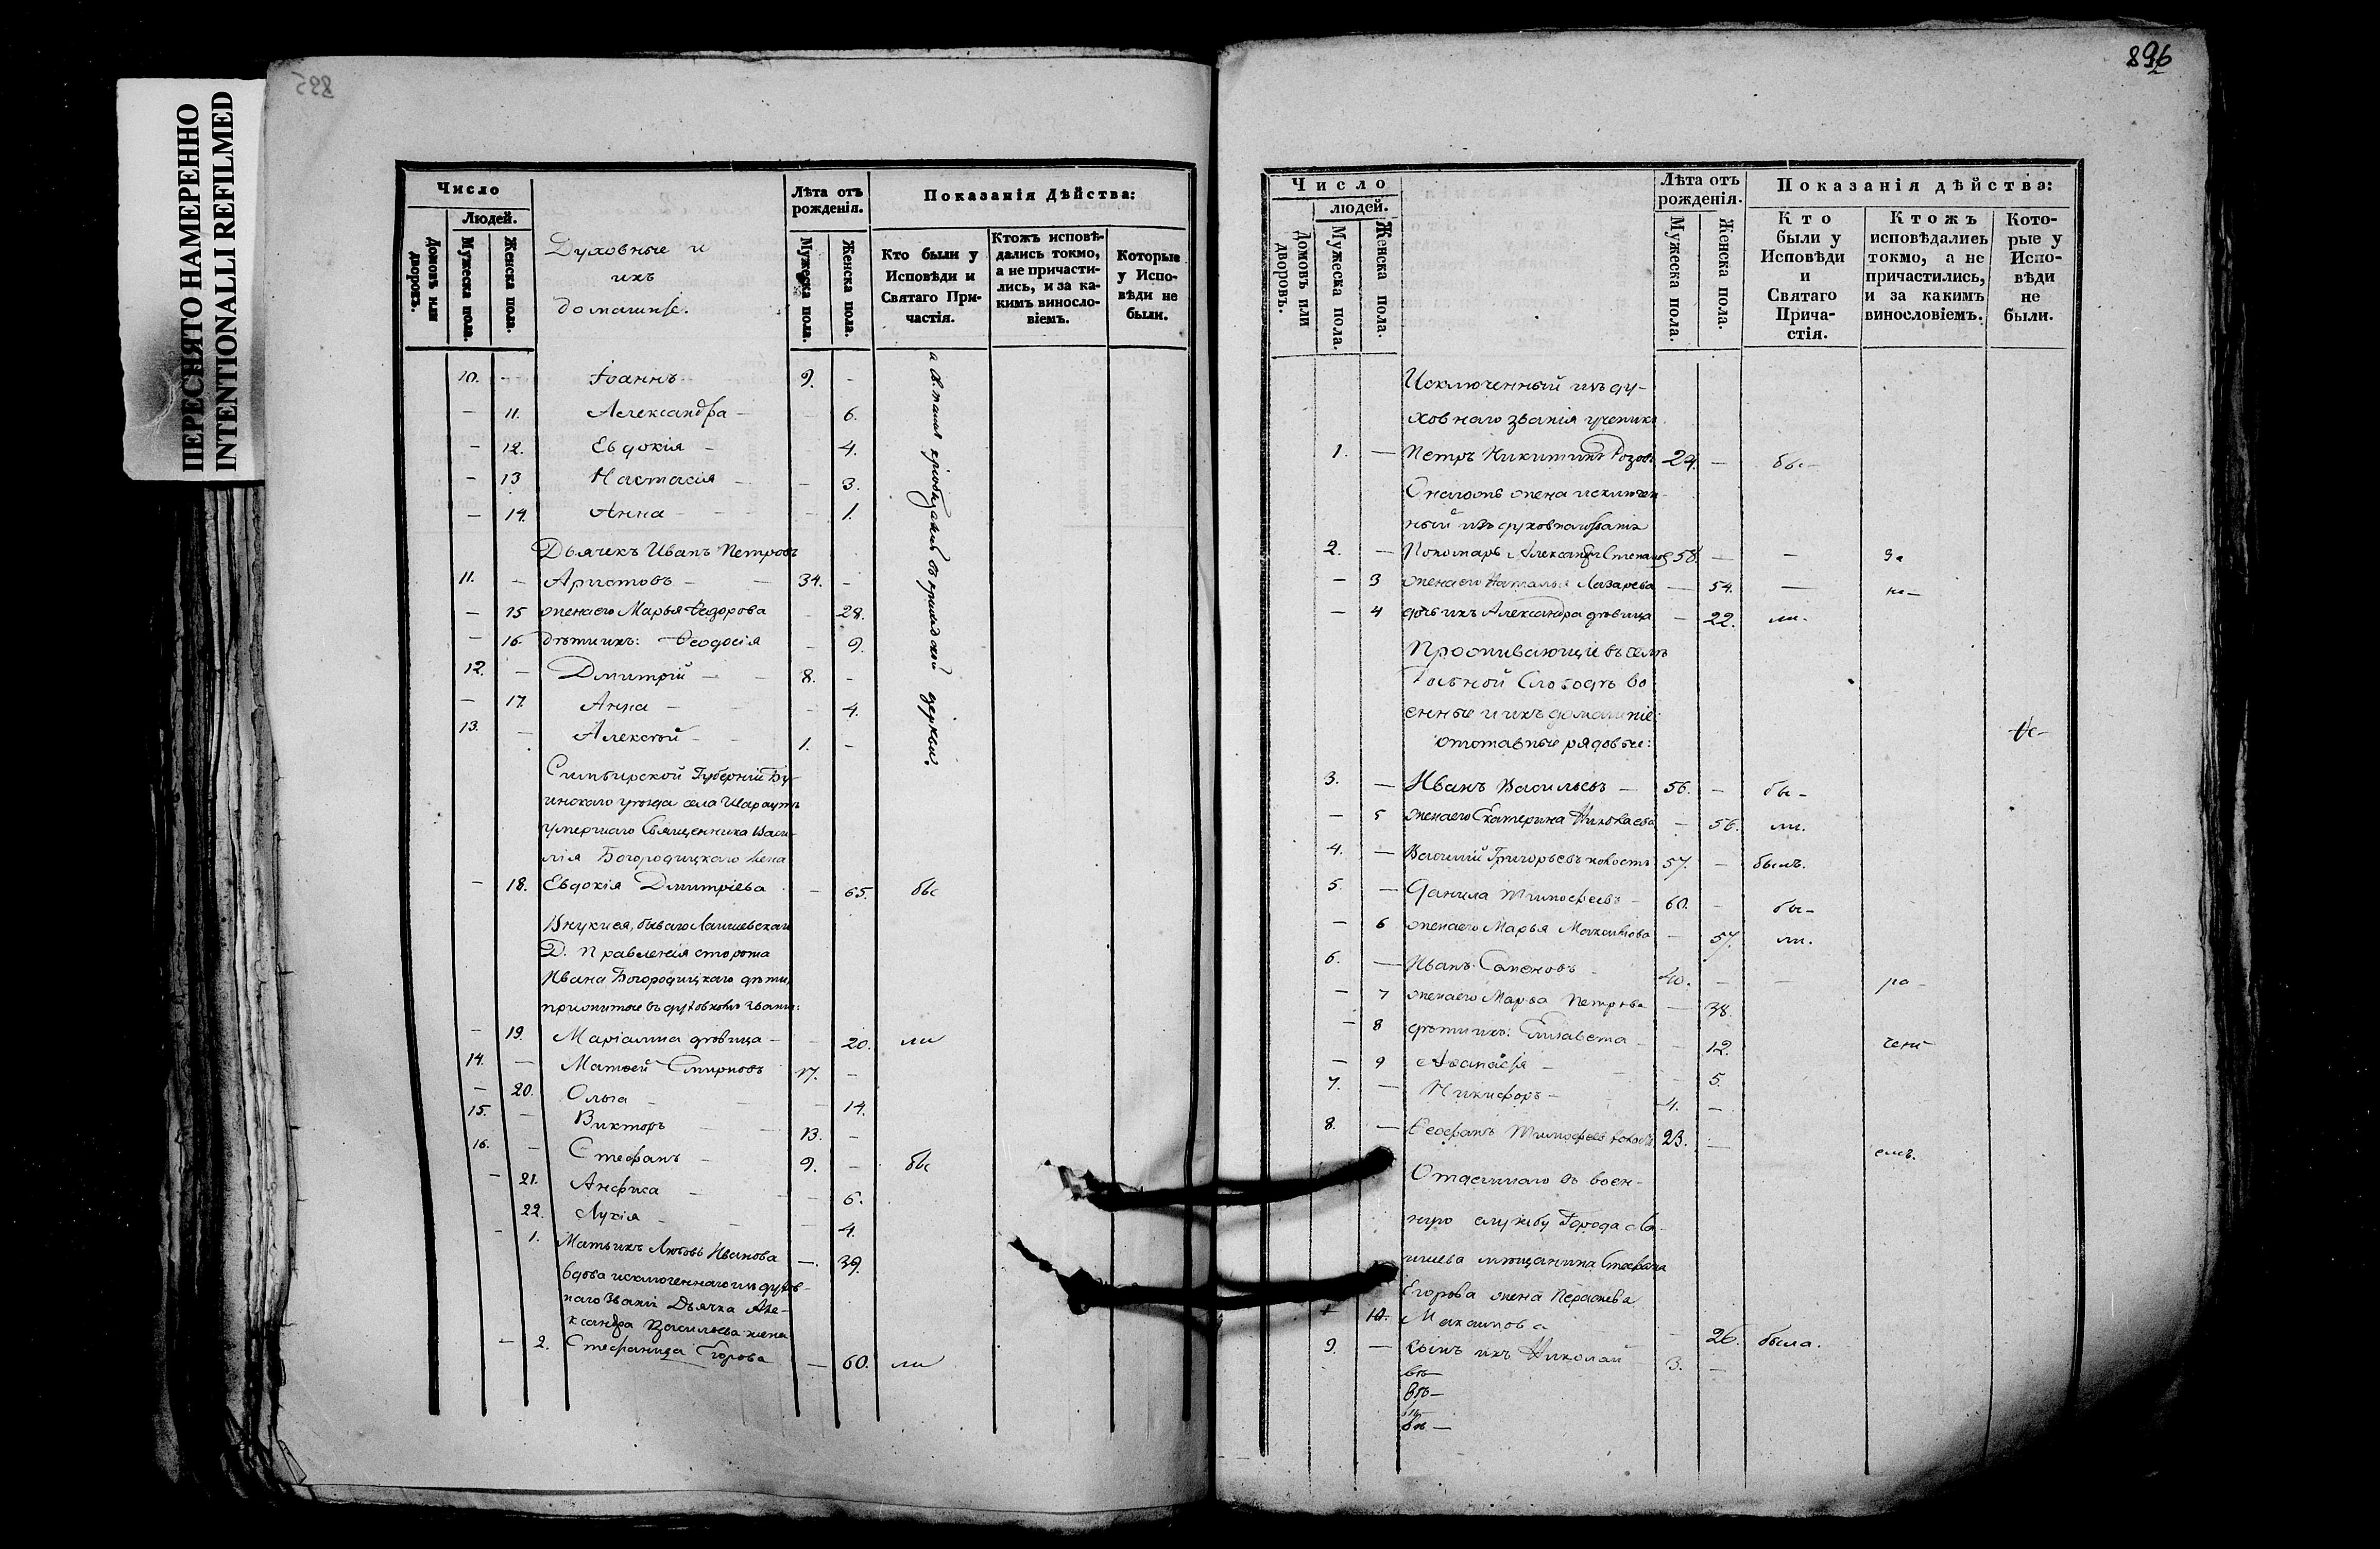 ПЕРЕСНЯТО НАМЕРЕННО
INTENTIONALLI REFILMED
895
Число
Людей.
Домовъ или дворовъ.
Мужеска пола.
Женска пола.
Духовные и
ихъ
домашніе.
Лѣта отъ рожденія.
Мужеска пола.
Женска пола.
Показанія дѣйства:
Кто были у Исповѣди и Святаго Причастія.
Ктожъ исповѣдались токмо, а не причастились, и за какимъ винословіемъ.
Которые у Исповѣди не были.
10. — Іоаннъ 9. —
— 11. Александра — 6.
— 12. Евдокія — 4.
— 13 Настасія — 3.
— 14. Анна — 1.
Дьячекъ Иванъ Петровъ
11. — Аристовъ — 34. —
— 15 жена его Марья Ѳедорова — 28.
— 16. дѣти ихъ: Ѳеодосія — 9.
12. — Дмитрій — 8. —
— 17. Анна — 4.
13. — Алексѣй — 1. —
церкви.
Симбирской Губерніи Бу-
инскаго уѣзда села
умершаго Священника Васи-
лія Богородицкаго жена
— 18. Евдокія Дмитріева — 65. бы
Внуки ея, бываго Лаишевскаго
Д. Правленія сторожа
Ивана Богородицкаго дѣти,
прижитые въ духовномъ званіи:
— 19. Маріамна дѣвица — 20. ли
14. — Матвей Смирновъ 17. —
— 20. Ольга — 14.
15. — Викторъ 13. —
16. — Стефанъ — 9. — бы
— 21. Анфиса — 6.
22. Лукія — 4.
— 1. Мать ихъ Любовь Иванова — 39.
вдова исключеннаго изъ духов-
наго званія Дьячка Але-
ксандра Васильева жена
— 2. Стефанида Егорова — 60. ли
896
Число
людей.
Домовъ или дворовъ.
Мужеска пола.
Женска пола.
Лѣта отъ рожденія.
Мужеска пола.
Женска пола.
Показанія дѣйства:
Кто были у Исповѣди и Святаго Причастія.
Ктожъ исповѣдались токмо, а не причастились, и за какимъ винословіемъ.
Которые у Исповѣди не были.
Исключенный изъ ду-
ховнаго званія ученикъ
1. — Петръ Никитинъ Розовъ 24. — бы-
жена исключен-
ный изъ духовнаго званія
2. — Пономарь Александръ Степановъ 58. — — за
— 3 жена его Наталья Лазарева — 54. — не-
— 4 дочь ихъ Александра дѣвица — 22. ли.
Проживающіе въ селѣ
Слободѣ во-
енные и ихъ домашніе:
отставные рядовые:
Не-
3. — Иванъ Васильевъ — 56. — бы-
— 5 жена его Екатерина Николаева — 56. ли.
4. — Василий Григорьевъ холостъ 57. — былъ.
5. — Данила Тимофеевъ — 60. — бы-
— 6 жена его Марья Максимова — 57. ли.
6. — Иванъ Семеновъ 40. — — ра-
— 7 жена его Марья Петрова — 38.
— 8 дѣти ихъ: Елизавета — 12. чені-
— 9 Аѳанасія — 5.
7. — Никифоръ — 4. —
8. — Ѳеофанъ Тимофеевъ холостъ 23. — емъ.
Отданнаго въ воен-
ную службу Города Ла-
ишева мѣщанина Стефана
Егорова жена Параскева
10. Максимова — 26. была.
9. — сынъ ихъ Николай 3. —